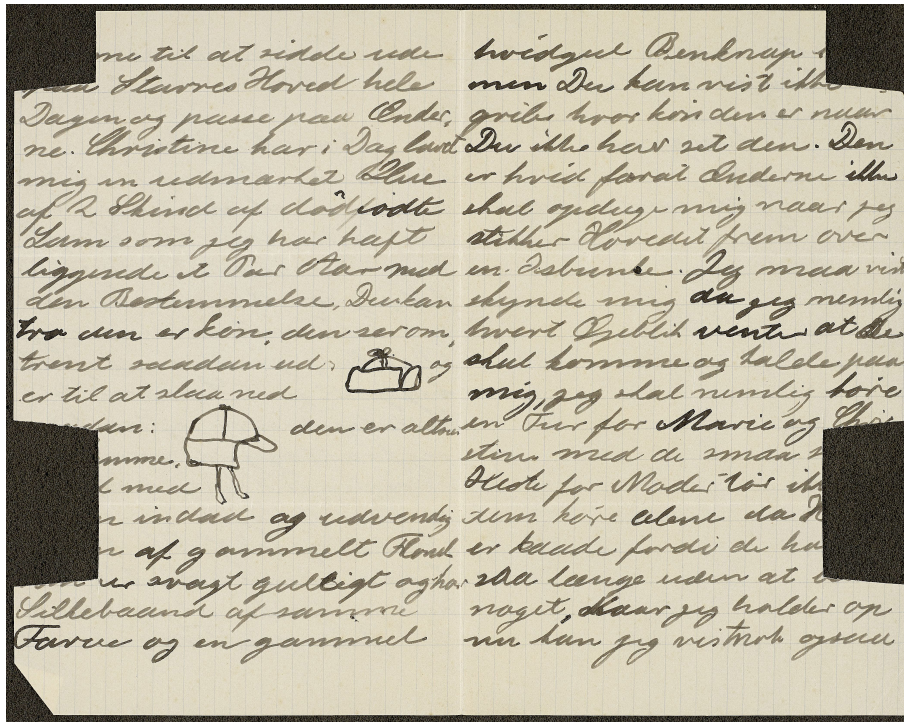 me til at sidde ude
paa Stavres Hoved hele
Dagen og passe paa Ænder,
ne. Christine har i Dag lavet
mig en udmærket Hue
af 2 Skind af dødfødte
Lam som jeg har haft
liggende et Par Aar med
den Bestemmelse, Du kan
tro den er køn, den ser om,
trent saadan ud: og
er til at slaa ned
den er altsaa
med
indad og udvendig
af gammelt Flonel
er svagt gulligt og har
Silkebaand af samme
Farve og en gammel
hvidgul Benknap
men Du kan vist ikke
gribe hvor kon den er naar
Du ikke har set den. Den
er hvid forat Ænderne ikke
skal opdage mig naar jeg
stikker Hovedet frem over
en Isbunke. Jeg maa vist
skynde mig da jeg nemlig
hvert Øjeblik venter at De
skal komme og kalde paa
mig, jeg skal nemlig køre
en Tur for Marie og Chri
stine med de smaa
Heste for Moder tør ikke
dem køre alene da
er kaade fordi de ha
staa længe uden at
noget, Naar jeg holder op
nu kan jeg vistnok ogsaa